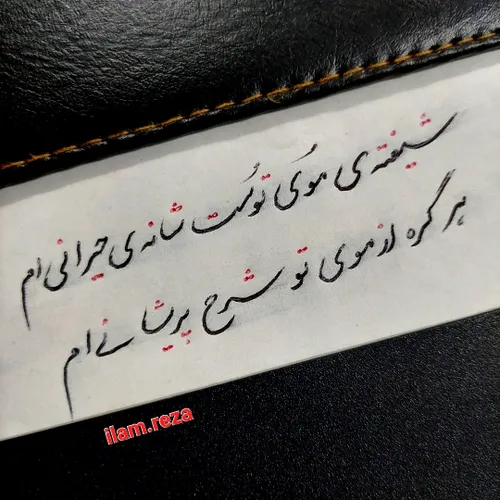 شیفته‌ی موی توست شانه‌ی حیرانی‌ام
هر گره از موی تو شرح پریشانی‌ام
ilam.reza